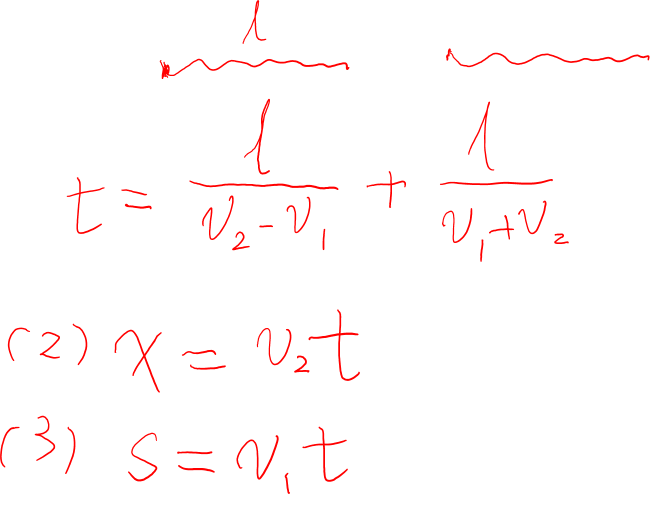 l
t = l/(v₂-v₁) + l/(v₁+v₂)
(2) x = v₂t
(3) s = v₁t